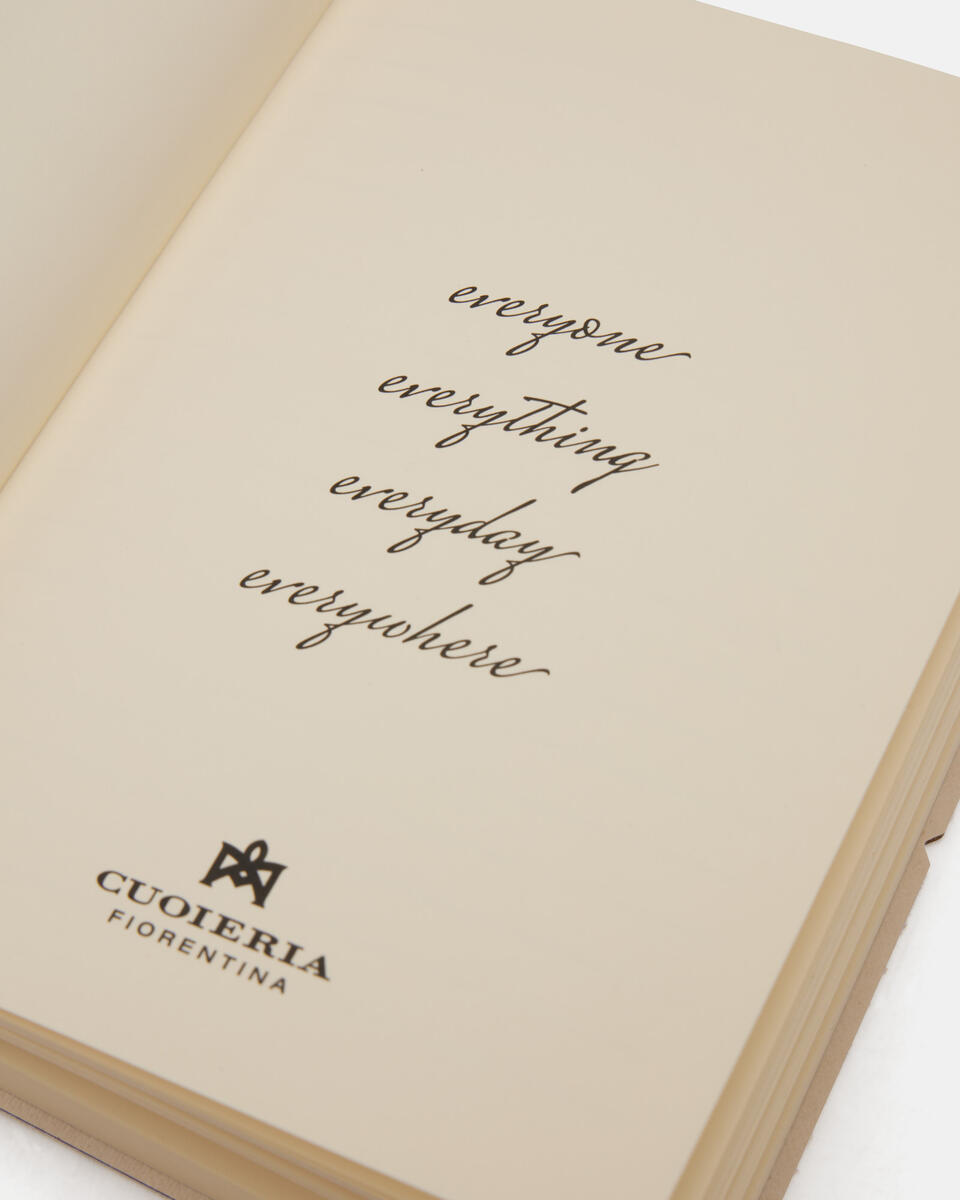 everyone
everything
everyday
everywhere
CUOIERIA
FIORENTINA